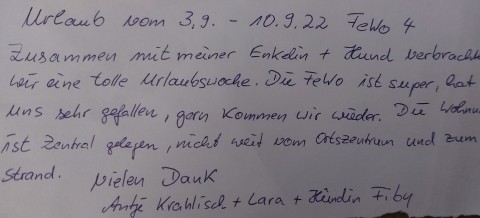 Urlaub vom 3.9. - 10.9.22 FeWo 4
Zusammen mit meiner Enkelin + Hund verbrachte
wir eine tolle Urlaubswoche. Die FeWo ist super, hat
uns sehr gefallen, gern kommen wir wieder. Die Wohnu
ist Zentral gelegen, nicht weit vom Ortszentrum und zum
Strand. Vielen Dank
Antje Krahlisch + Lara + Hündin Fiby